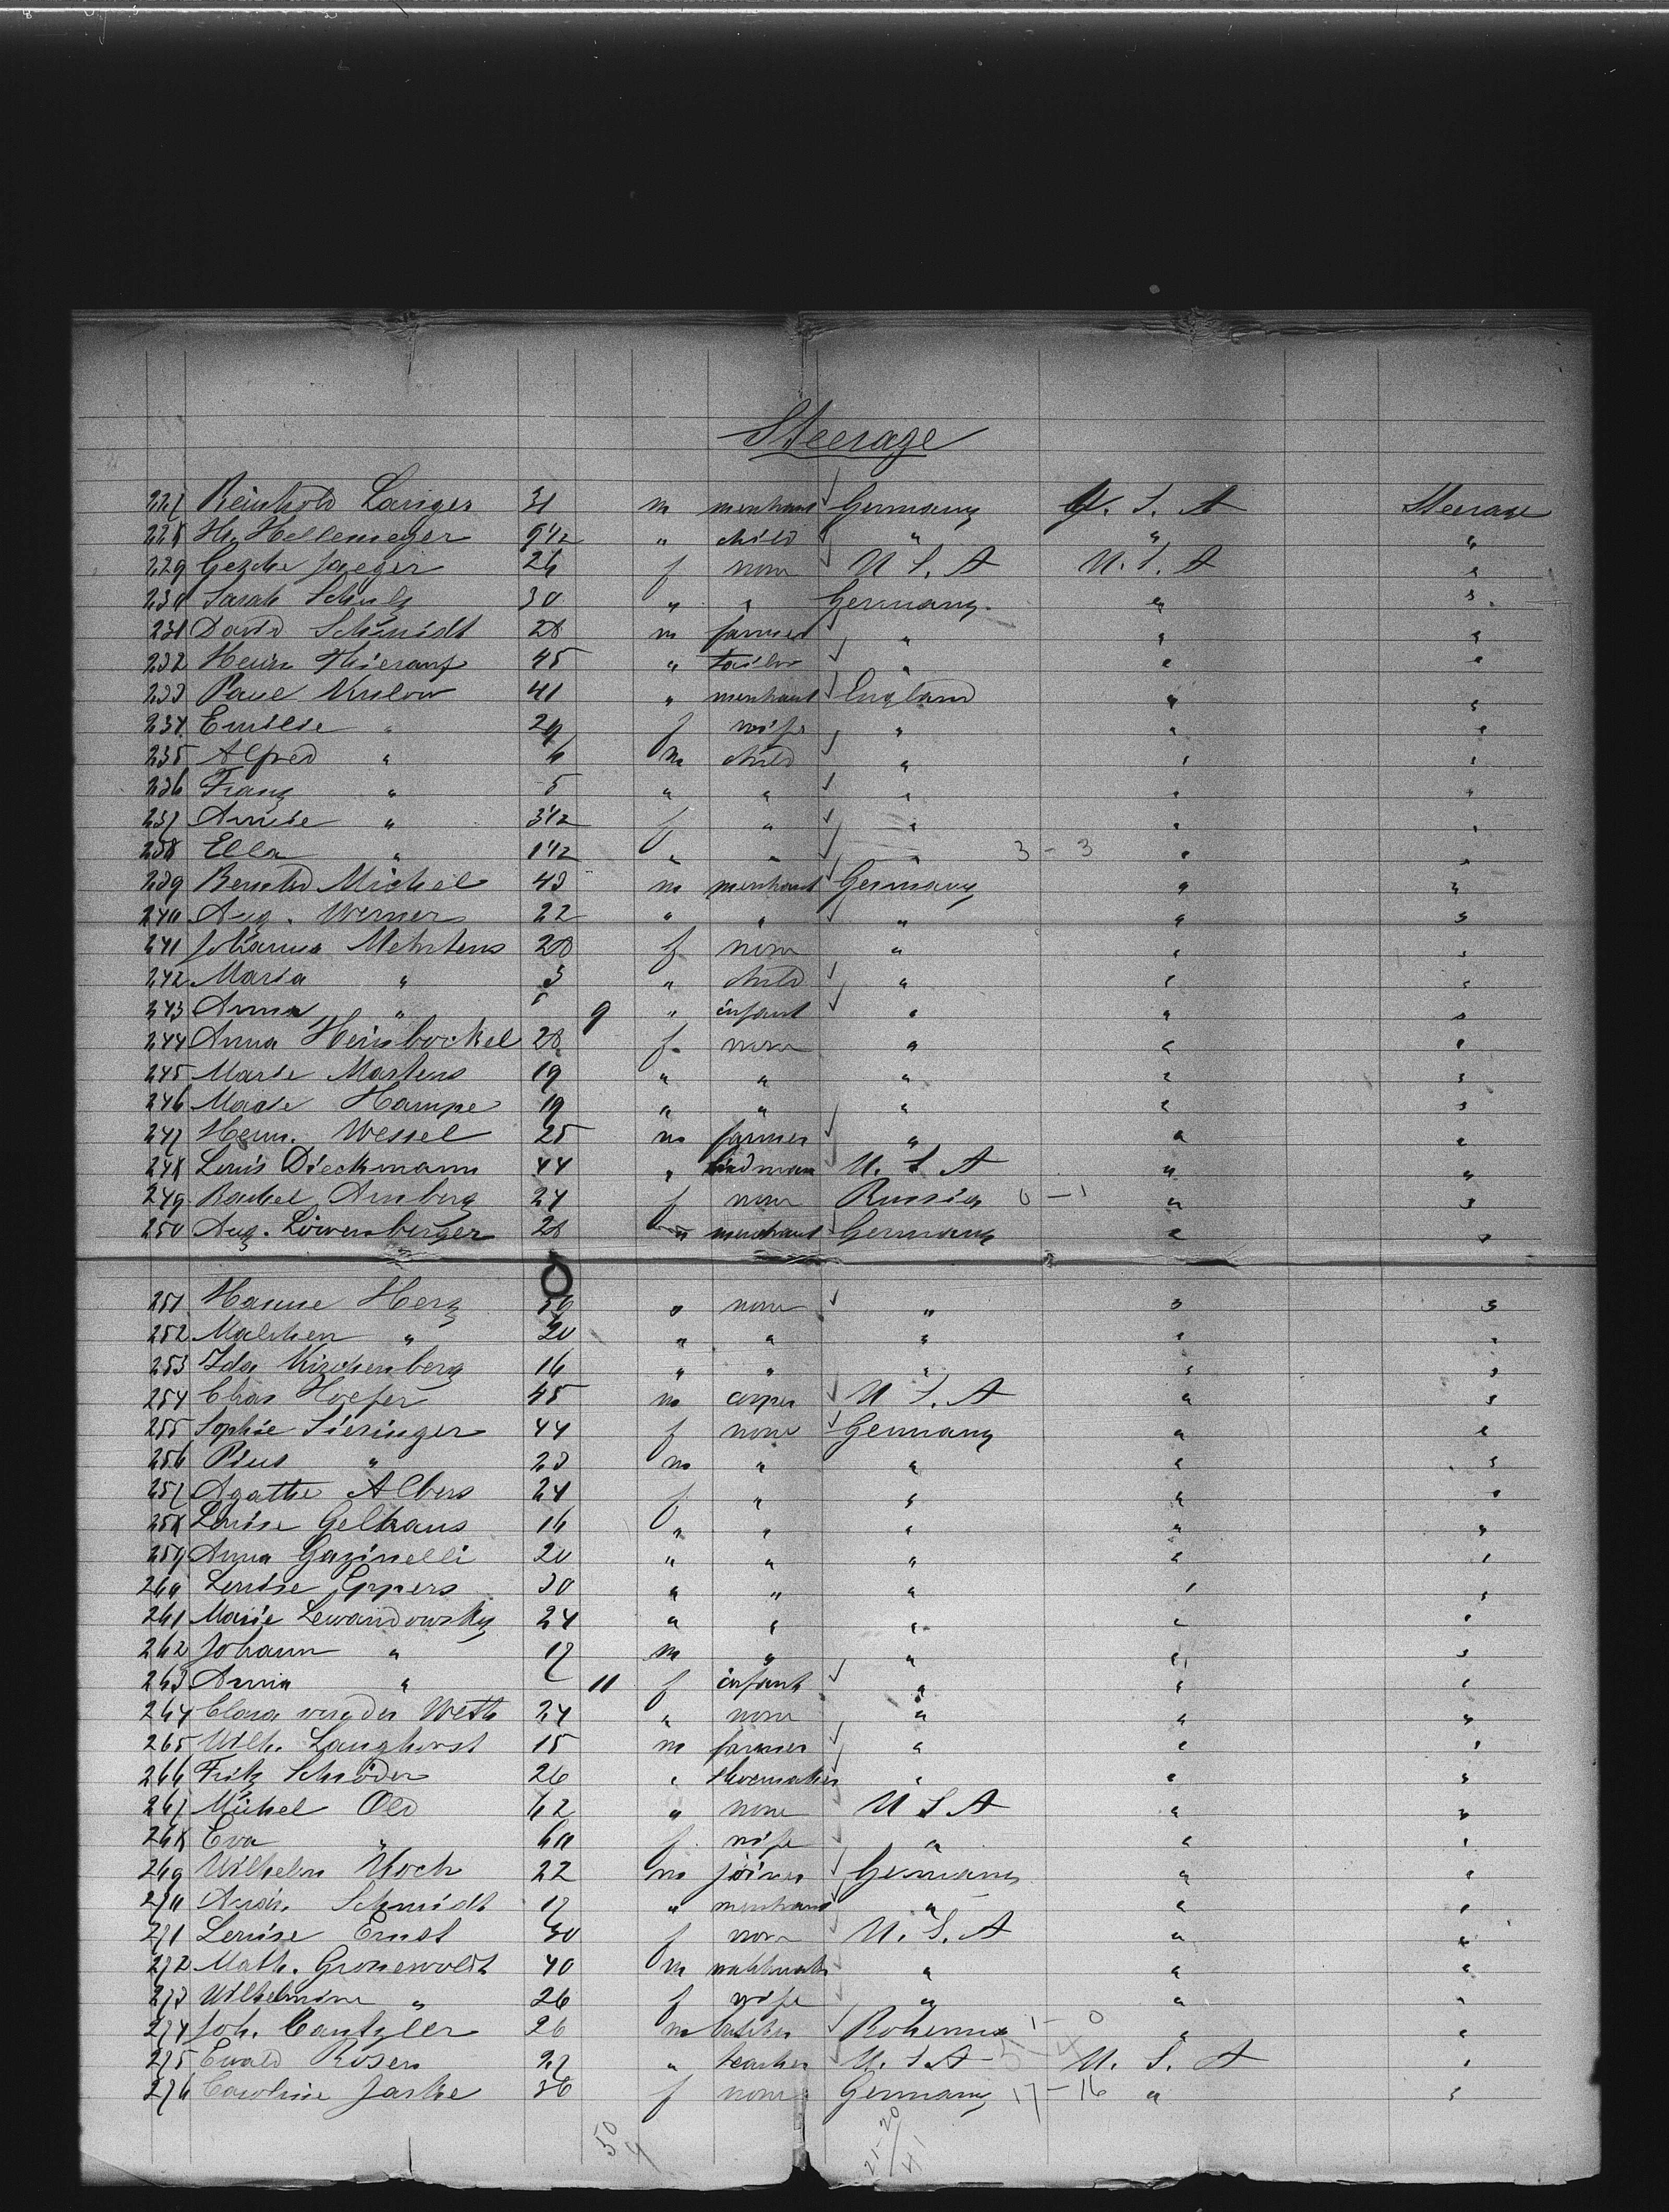 Steerage
227 Reinhold Lariger 31 m merchant Germany U. S. A Steerage
228 Hr. Hellemeyer 9 1/2 " child " " "
229 Gesche Jaeger 26 f none U S. A U. S. A "
230 Sarah Schulz 30 " " Germany. " "
231 David Schmidt 28 m farmer " " "
232 Heinr Thierauf 45 " tailor " " "
233 Paul Krulow 41 " merchant England " "
234 Emilie " 29 f wife " " "
235 Alfred " 6 m child " " "
236 Franz " 5 " " " " "
237 " 3 1/2 f " " " "
238 Ella " 1 1/2 " " " 3 - 3 " "
239 Michel 43 m merchant Germany " "
240 Aug. Werner 22 " " " " "
241 Johanna Mehrtens 28 f none " " "
242 Maria " 3 " child " " "
243 Anna " 9 " infant " " "
244 Anna Heinbockel 28 f none " " "
245 Marie Martens 19 " " " " "
246 Marie Hampe 19 " " " " "
247 Herm. Wessel 25 m farmer " " "
248 Louis Dieckmann 44 " U. S A " "
249 Rachel Arnberg 24 f none Russia 0 - 1 " "
250 Aug. Löwenberger 28 " merchant Germany " "
251 Hanne Herz 56 " none " " "
252 Malchen " 20 " " " " "
253 Ida Kirchenberg 16 " " " " "
254 Chas Hoefer 45 m U S. A " "
255 Sophie Sieringer 44 f none Germany " "
256 Pius " 23 m " " " "
257 Agathe Albers 24 f " " " "
258 Louise Gelhaus 16 " " " " "
259 Anna Gazinelli 20 " " " " "
260 Louise Eppers 30 " " " " "
261 Marie Lewandowsky 24 " " " " "
262 Johann " 17 m " " " "
263 Anna " 11 f infant " " "
264 Clara Weth 24 " none " " "
265 Wilh. Langhorst 15 m farmer " " "
266 Fritz Schröder 26 " shoemaker " " "
267 Michel Old 62 " none U S A " "
268 Eva " 60 f wife " " "
269 Wilhelm Koch 22 m joiner Germany " "
270 Schmidt 17 " merchant " " "
271 Louise Ernst 30 f none U. S. A " "
272 Math. Gronewoldt 40 m " " "
273 Wilhelmine " 26 f wife " " "
274 Joh. Cantzler 26 m butcher Bohemia 1 - 0 " "
275 Ewald Rosen 27 " teacher U. S A U. S. A "
276 Caroline Jaske 36 f none Germany 17 - 16 " "
50
4
21-20
41